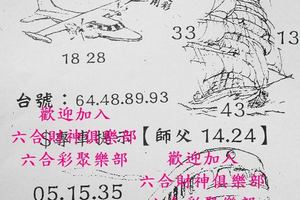 角彩
33
13
18 28
台號：64.48.89.93
歡迎加入
43
六合財神俱樂部
$專車提示【師父 14.24】
六合彩聚樂部
歡迎加入
六合財神俱樂部
05.15.35